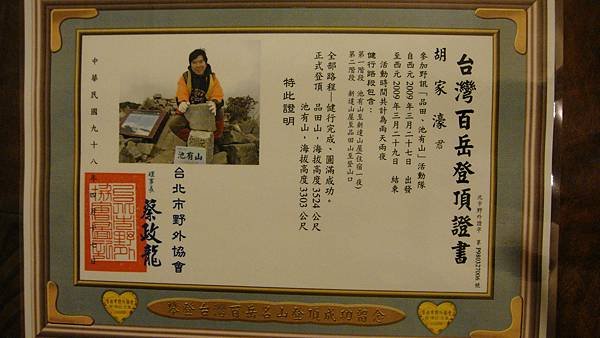 台灣百岳登頂證書
北市野外證字 第 P980327006 號
胡家濠 君
參加野訊「品田、池有山」活動隊
自西元 2009 年三月二十七日 出發
至西元 2009 年三月二十九日 結束
活動時間共計為兩天兩夜
健行路段包含:
第一階段 池有山至新達山屋(住宿一夜)
第二階段 新達山屋至品田山至登山口
全部路程—健行完成、圓滿成功。
正式登頂 品田山,海拔高度 3524 公尺
池有山,海拔高度 3303 公尺
特此證明
池有山
台北市野外協會
理事長 蔡政龍
中華民國九十八年
攀登台灣百岳名山登頂成功留念